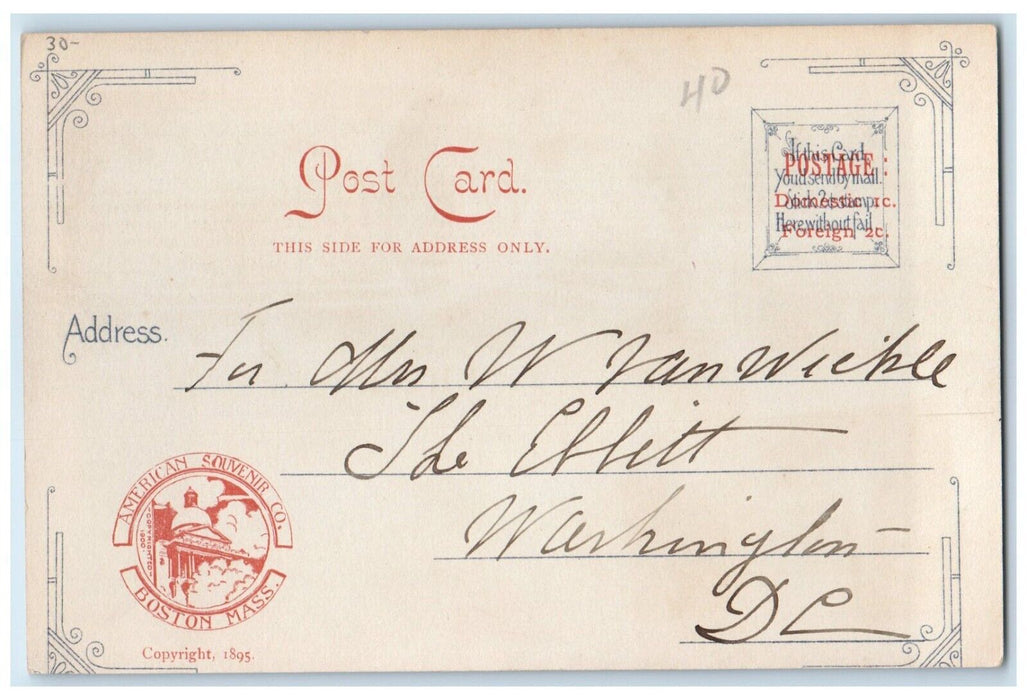 30-
40
Post Card.
THIS SIDE FOR ADDRESS ONLY.
If this Card
POSTAGE:
You'd send by mail.
Domestic 1c.
Stick 2ct stamp,
Here without fail
Foreign 2c.
Address.
For Mrs W Van Wickle
The Ebbitt
Washington
D C
AMERICAN SOUVENIR CO.
BOSTON MASS.
Copyright, 1895.